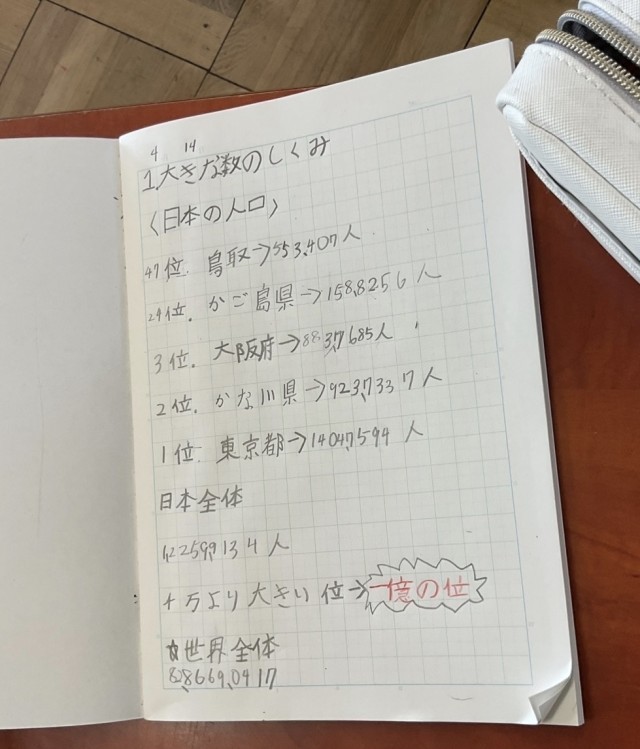 4 14
1大きな数のしくみ
〈日本の人口〉
47位. 鳥取→553,407人
24位. かご島県→158,8256人
3位. 大阪府→883,7685人
2位. かな川県→923,7337人
1位. 東京都→1404,7594人
日本全体
1,2259,9134人
十万より大きい位→一億の位
☆世界全体
8,8669,0417